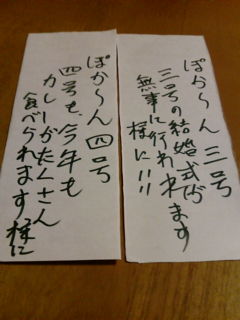 ぽか〜ん 三号
三号の結婚式が
無事に行われます
様に!!
ぽか〜ん 四号
四号も、今年も
カレーがたくさん
食べられます様に